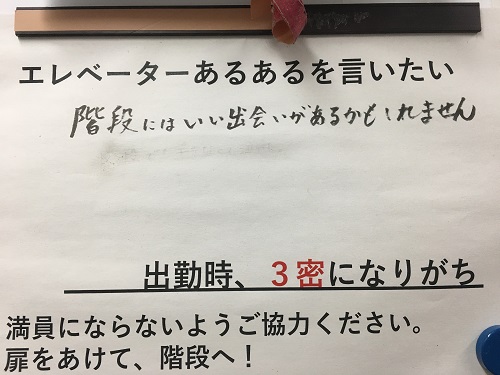 エレベーターあるあるを言いたい
階段にはいい出会いがあるかもしれません
出勤時、3密になりがち
満員にならないようご協力ください。
扉をあけて、階段へ！